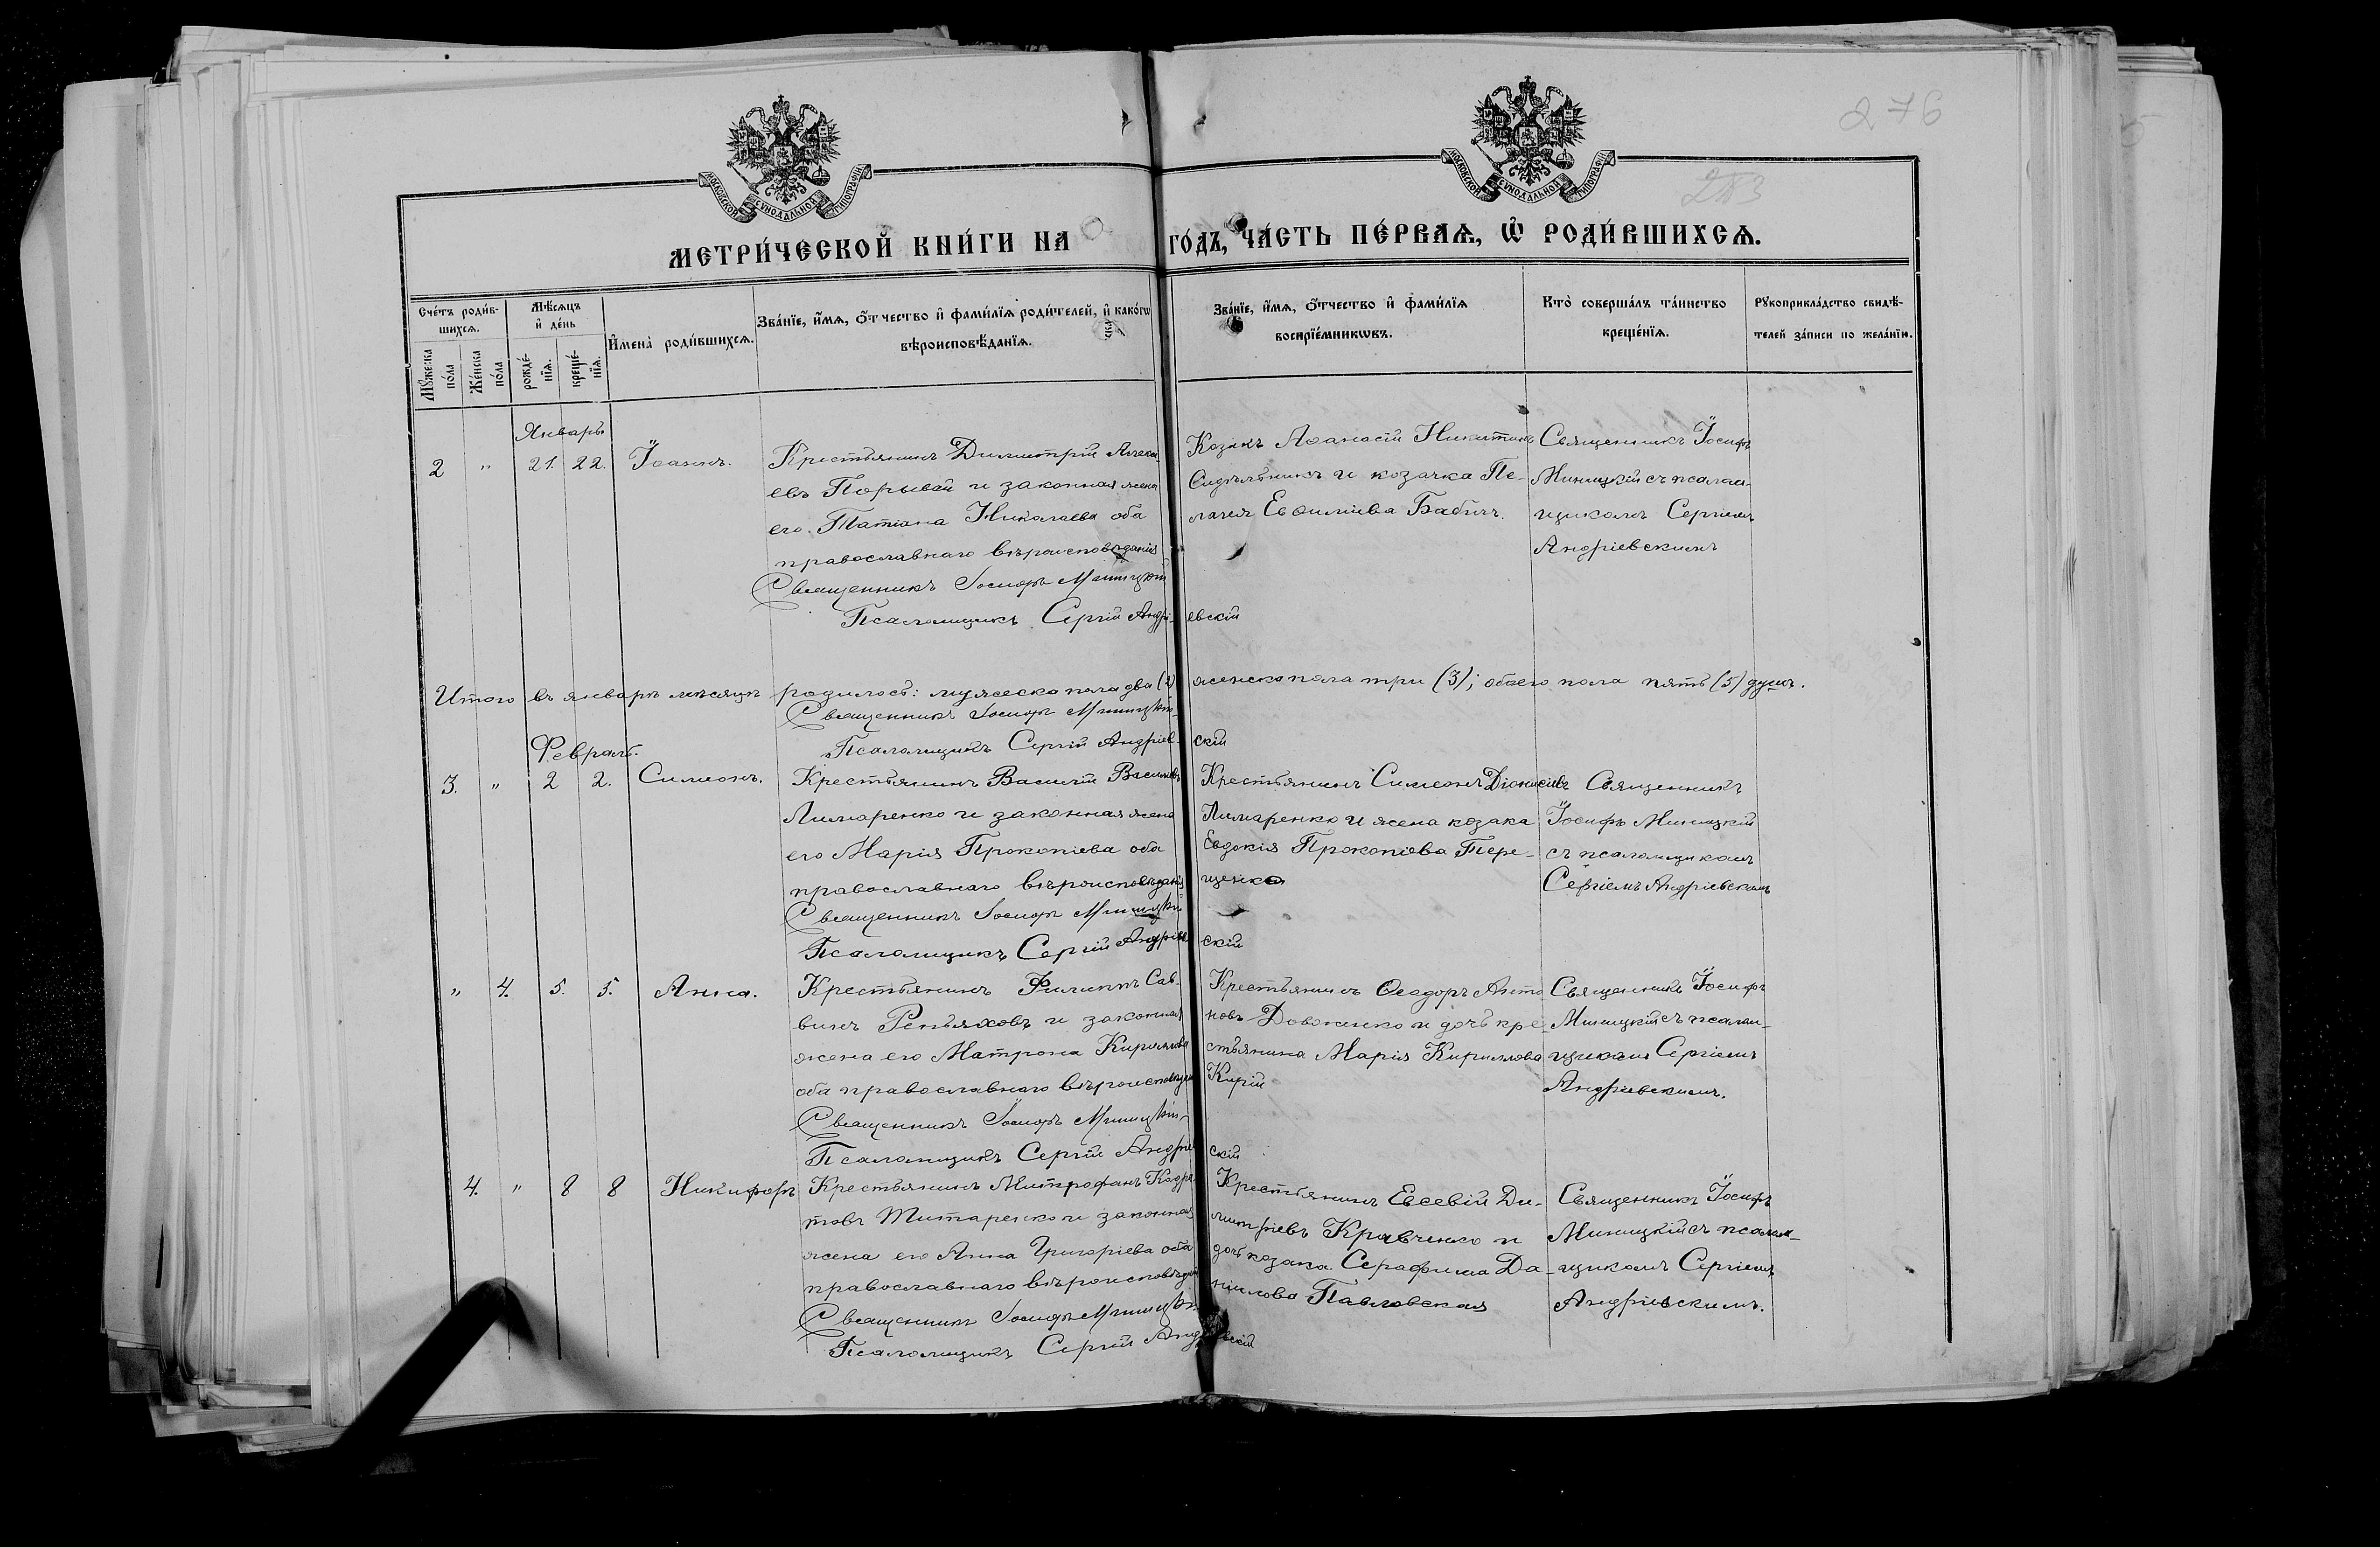 276
283
МОСКОВСКОЙ СУНОДАЛЬНОЙ ТИПОГРАФІИ
МОСКОВСКОЙ СУНОДАЛЬНОЙ ТИПОГРАФІИ
МЕТРИ́ЧЕСКОЙ КНИ́ГИ НА ГО́ДЪ, ЧА́СТЬ ПЕ́РВАѦ, Ѡ҆ РОДИ́ВШИХСѦ.
Сче́тъ роди́в-
шихсѧ.
Мꙋ́жеска
по́ла
Же́нска
по́ла
Мѣ́сѧцъ
и҆ де́нь
рожде́-
нїѧ.
креще́-
нїѧ.
И҆мена̀ роди́вшихсѧ.
Зва́нїе, и҆́мѧ, ѻ҆́тчество и҆ фами́лїѧ роди́телей, и҆ како́гѡ
вѣроисповѣ́данїѧ.
Зва́нїе, и҆́мѧ, ѻ҆́тчество и҆ фами́лїѧ
воспрїе́мникѡвъ.
Кто̀ соверша́лъ та́инство
креще́нїѧ.
Рꙋкоприкла́дство свидѣ́-
телей за́писи по жела́нїю.
Январь
2 " 21. 22. Іоаннъ.
Крестьянинъ Димитрій Алексѣ-
евъ Порывай и законная жена
его Татіана Николаева оба
православнаго вѣроисповѣданія
Священникъ Іосифъ Миницкій
Псаломщикъ Сергій Андріевскій
Козакъ Аѳанасій Никитинъ
Сидѣльникъ и козачка Пе-
лагея Евѳиміева Бабичъ.
Священникъ Іосифъ
Миницкій съ псалом-
щикомъ Сергіемъ
Андріевскимъ
Итого въ январѣ мѣсяцѣ родилось: мужеска пола два (2) женска пола три (3); обоего пола пять (5) душъ.
Священникъ Іосифъ Миницкій
Псаломщикъ Сергій Андріевскій
Февраль.
3. " 2 2. Симеонъ.
Крестьянинъ Василій Васильевъ
Лимаренко и законная жена
его Марія Прокопіева оба
православнаго вѣроисповѣданія
Священникъ Іосифъ Миницкій
Псаломщикъ Сергій Андріевскій
Крестьянинъ Симеонъ Діонисіевъ
Лимаренко и жена козака
Евдокія Прокопіева Тере-
щенко
Священникъ
Іосифъ Миницкій
съ псаломщикомъ
Сергіемъ Андріевскимъ
" 4. 5. 5. Анна.
Крестьянинъ Филиппъ Сав-
винъ Репяховъ и законная
жена его Матрона Кириллова
оба православнаго вѣроисповѣдан
Священникъ Іосифъ Миницкій
Псаломщикъ Сергій Андріевскій
Крестьянинъ Ѳеодоръ Анто
новъ Довженко и дочь кре-
стьянина Марія Кириллова
Кирій
Священникъ Іосифъ
Миницкій съ псалом-
щикомъ Сергіемъ
Андріевскимъ.
4. " 8 8 Никифоръ
Крестьянинъ Митрофанъ Кодра-
товъ Титаренко и законная
жена его Анна Григоріева оба
православнаго вѣроисповѣдан
Священникъ Іосифъ Миницкій
Псаломщикъ Сергій Андріевскій
Крестьянинъ Евсевій Ди-
митріевъ Кравченко и
дочь козака Серафима Да-
ніилова Павловская
Священникъ Іосифъ
Миницкій съ псалом-
щикомъ Сергіемъ
Андріевскимъ.